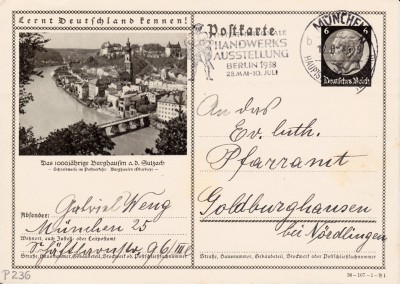 Lernt Deutschland kennen!
Postkarte
HANDWERKS
AUSSTELLUNG
BERLIN 1938
28.MAI-10.JULI
MÜNCHEN
6 6
Deutsches Reich
Das 1000jährige Burghausen a.d. Salzach
An das
Ev. luth.
Pfarramt
Goldburghausen
bei Nördlingen
Absender: Gabriel Weng
München 25
Wohnort, auch Zustell- oder Leitpostamt
Straße, Hausnummer, Gebäudeteil, Stockwerk od. Postschließfachnummer
Straße, Hausnummer, Gebäudeteil, Stockwerk oder Postschließfachnummer
P236